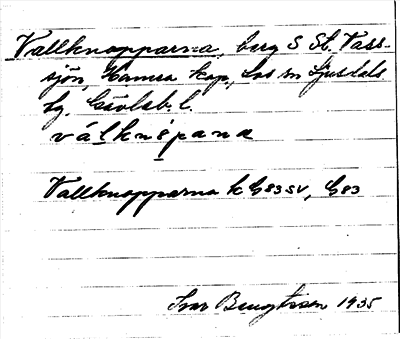 Vallknopparna, berg S St. Tass-
sjön, Hamra kap., Los sn Ljusdals
tg. Gävleb. l.
válknöpana
Vallknopparna k G83SV, G83
Ivar Bengtsson 1935